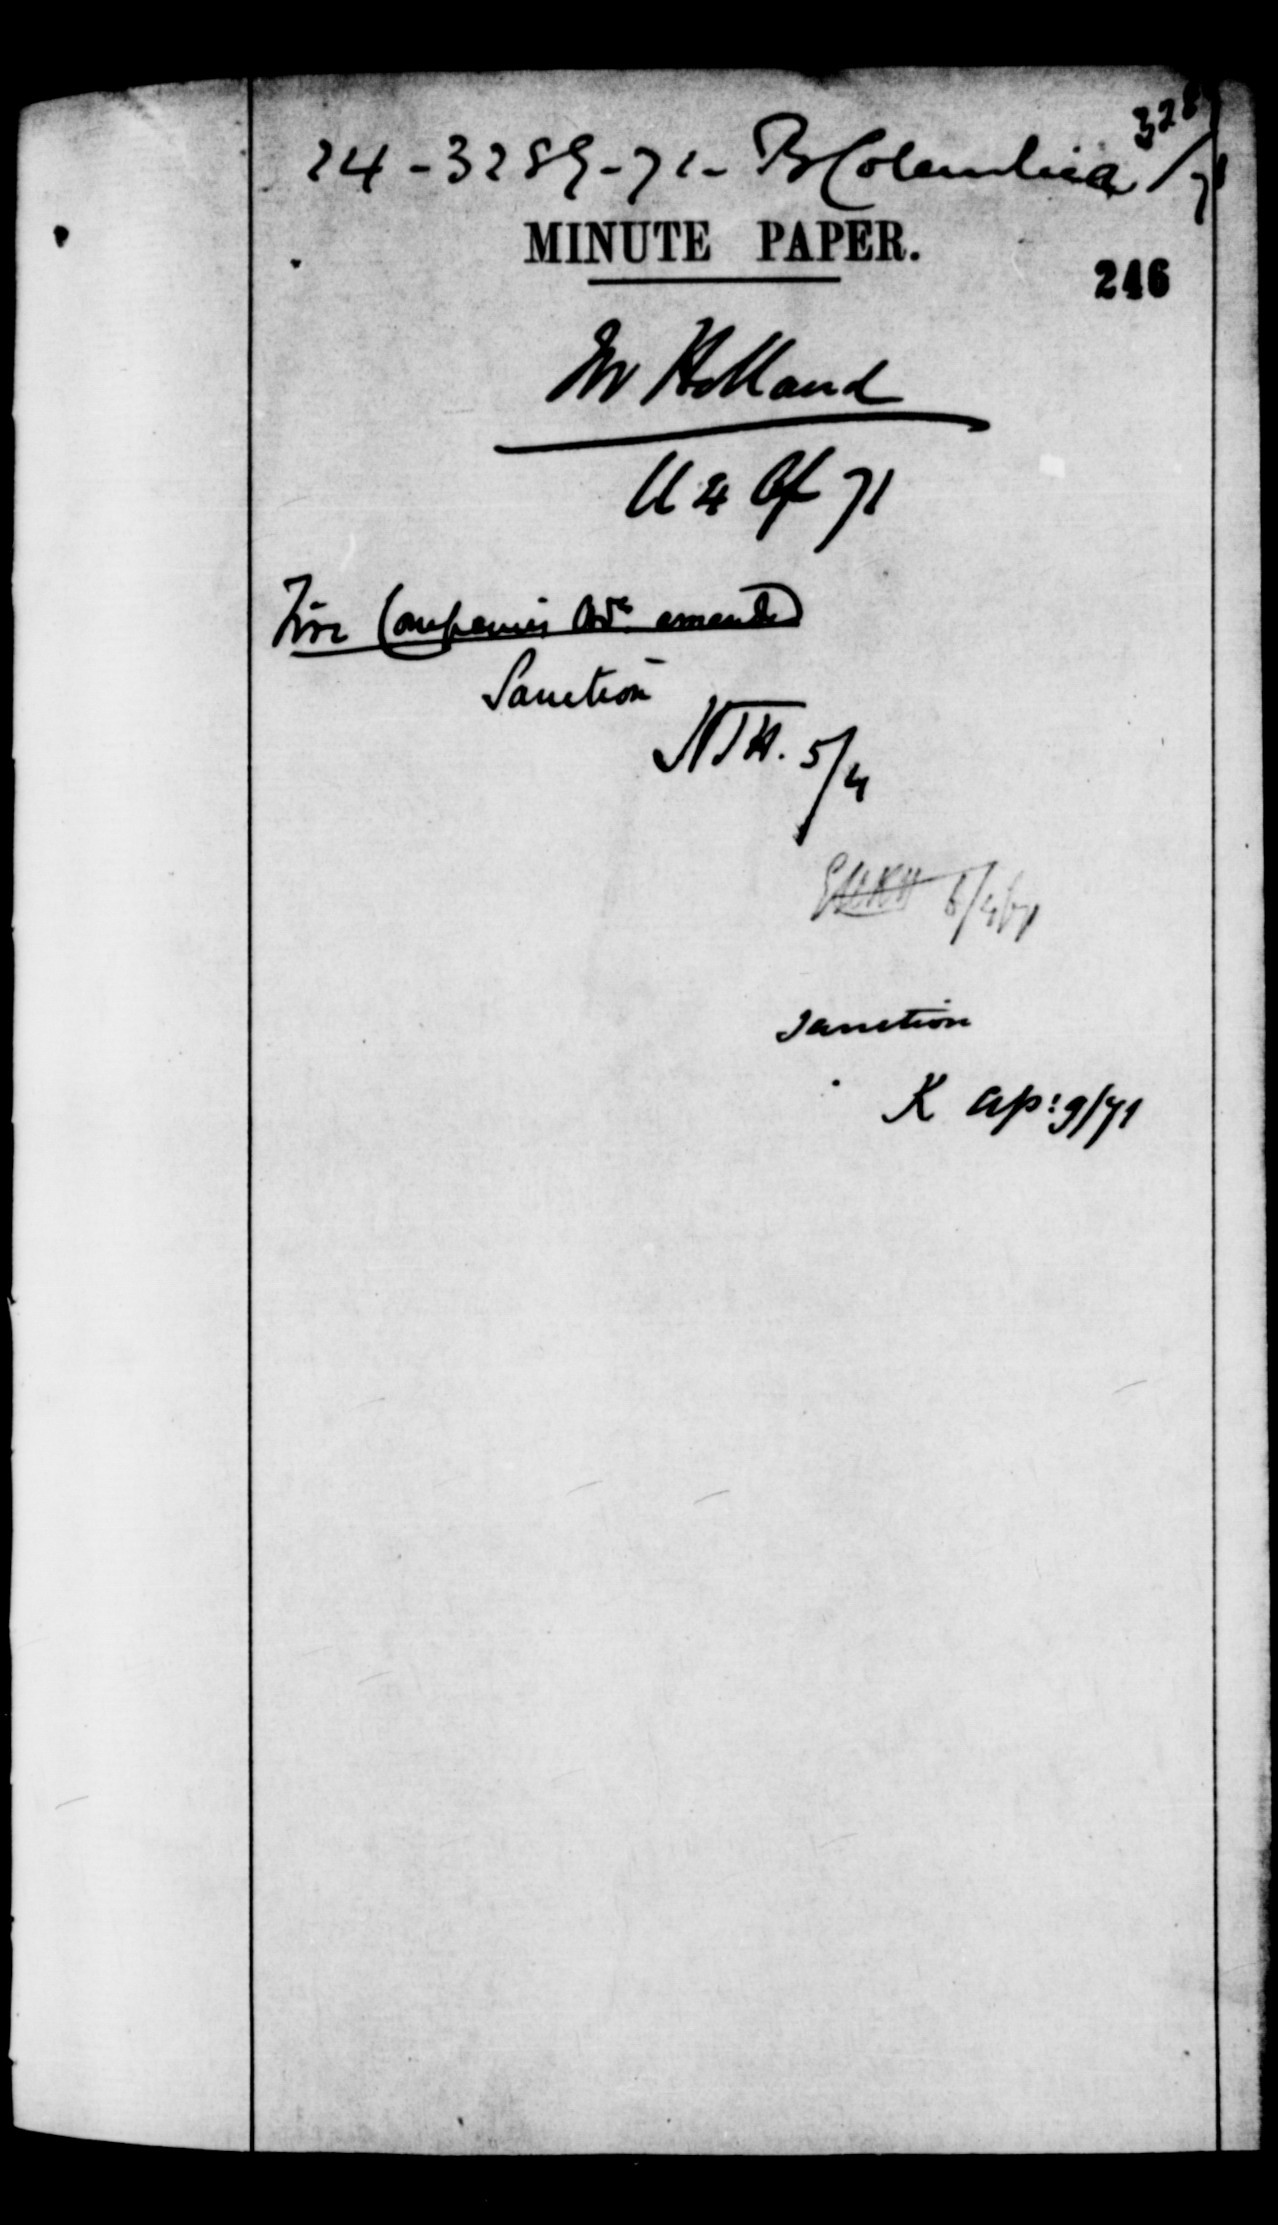 24-3289-71- B Columbia
328 /71
MINUTE PAPER.
246
Mr Holland
4 Ap 71
Fire Companies Ord: amended
Sanction
HTH. 5/4
EHKH 6/4/71
Sanction
K ap: 9/71